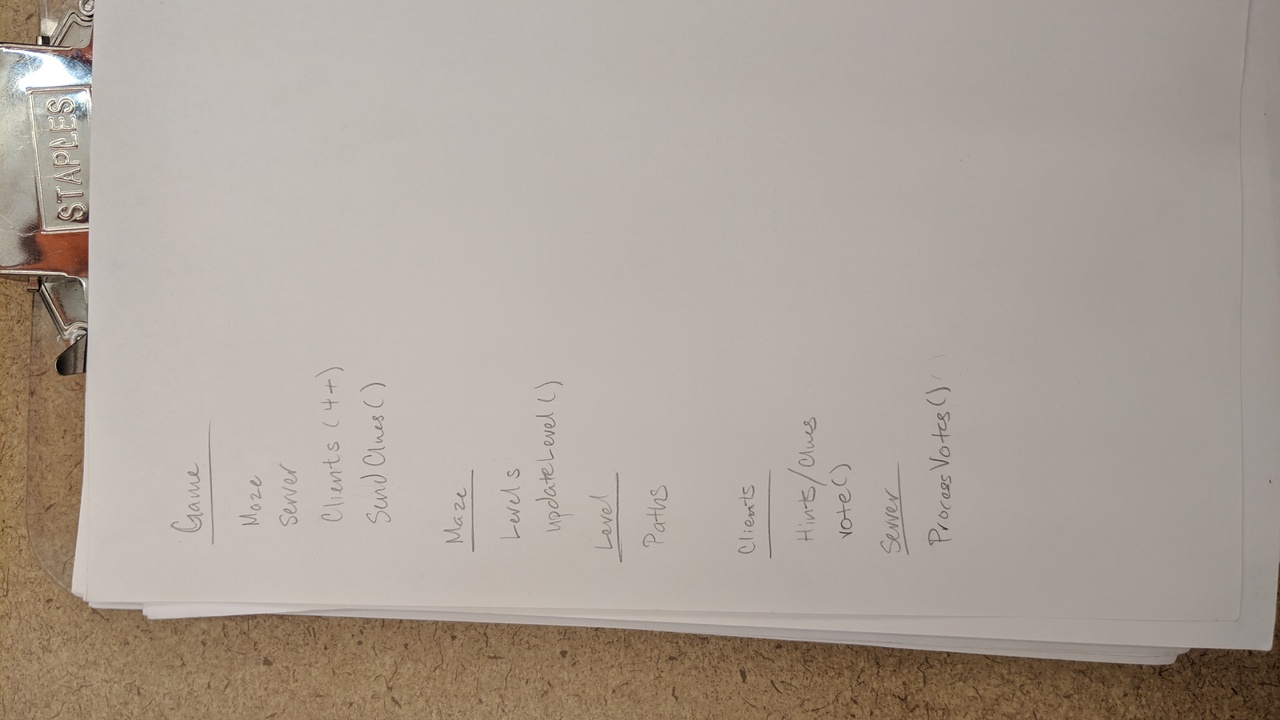 STAPLES
Game
Maze
Server
Clients (4+)
SendClues()
Maze
Levels
updateLevel()
Level
Paths
Clients
Hints/Clues
vote()
Server
ProcessVotes()